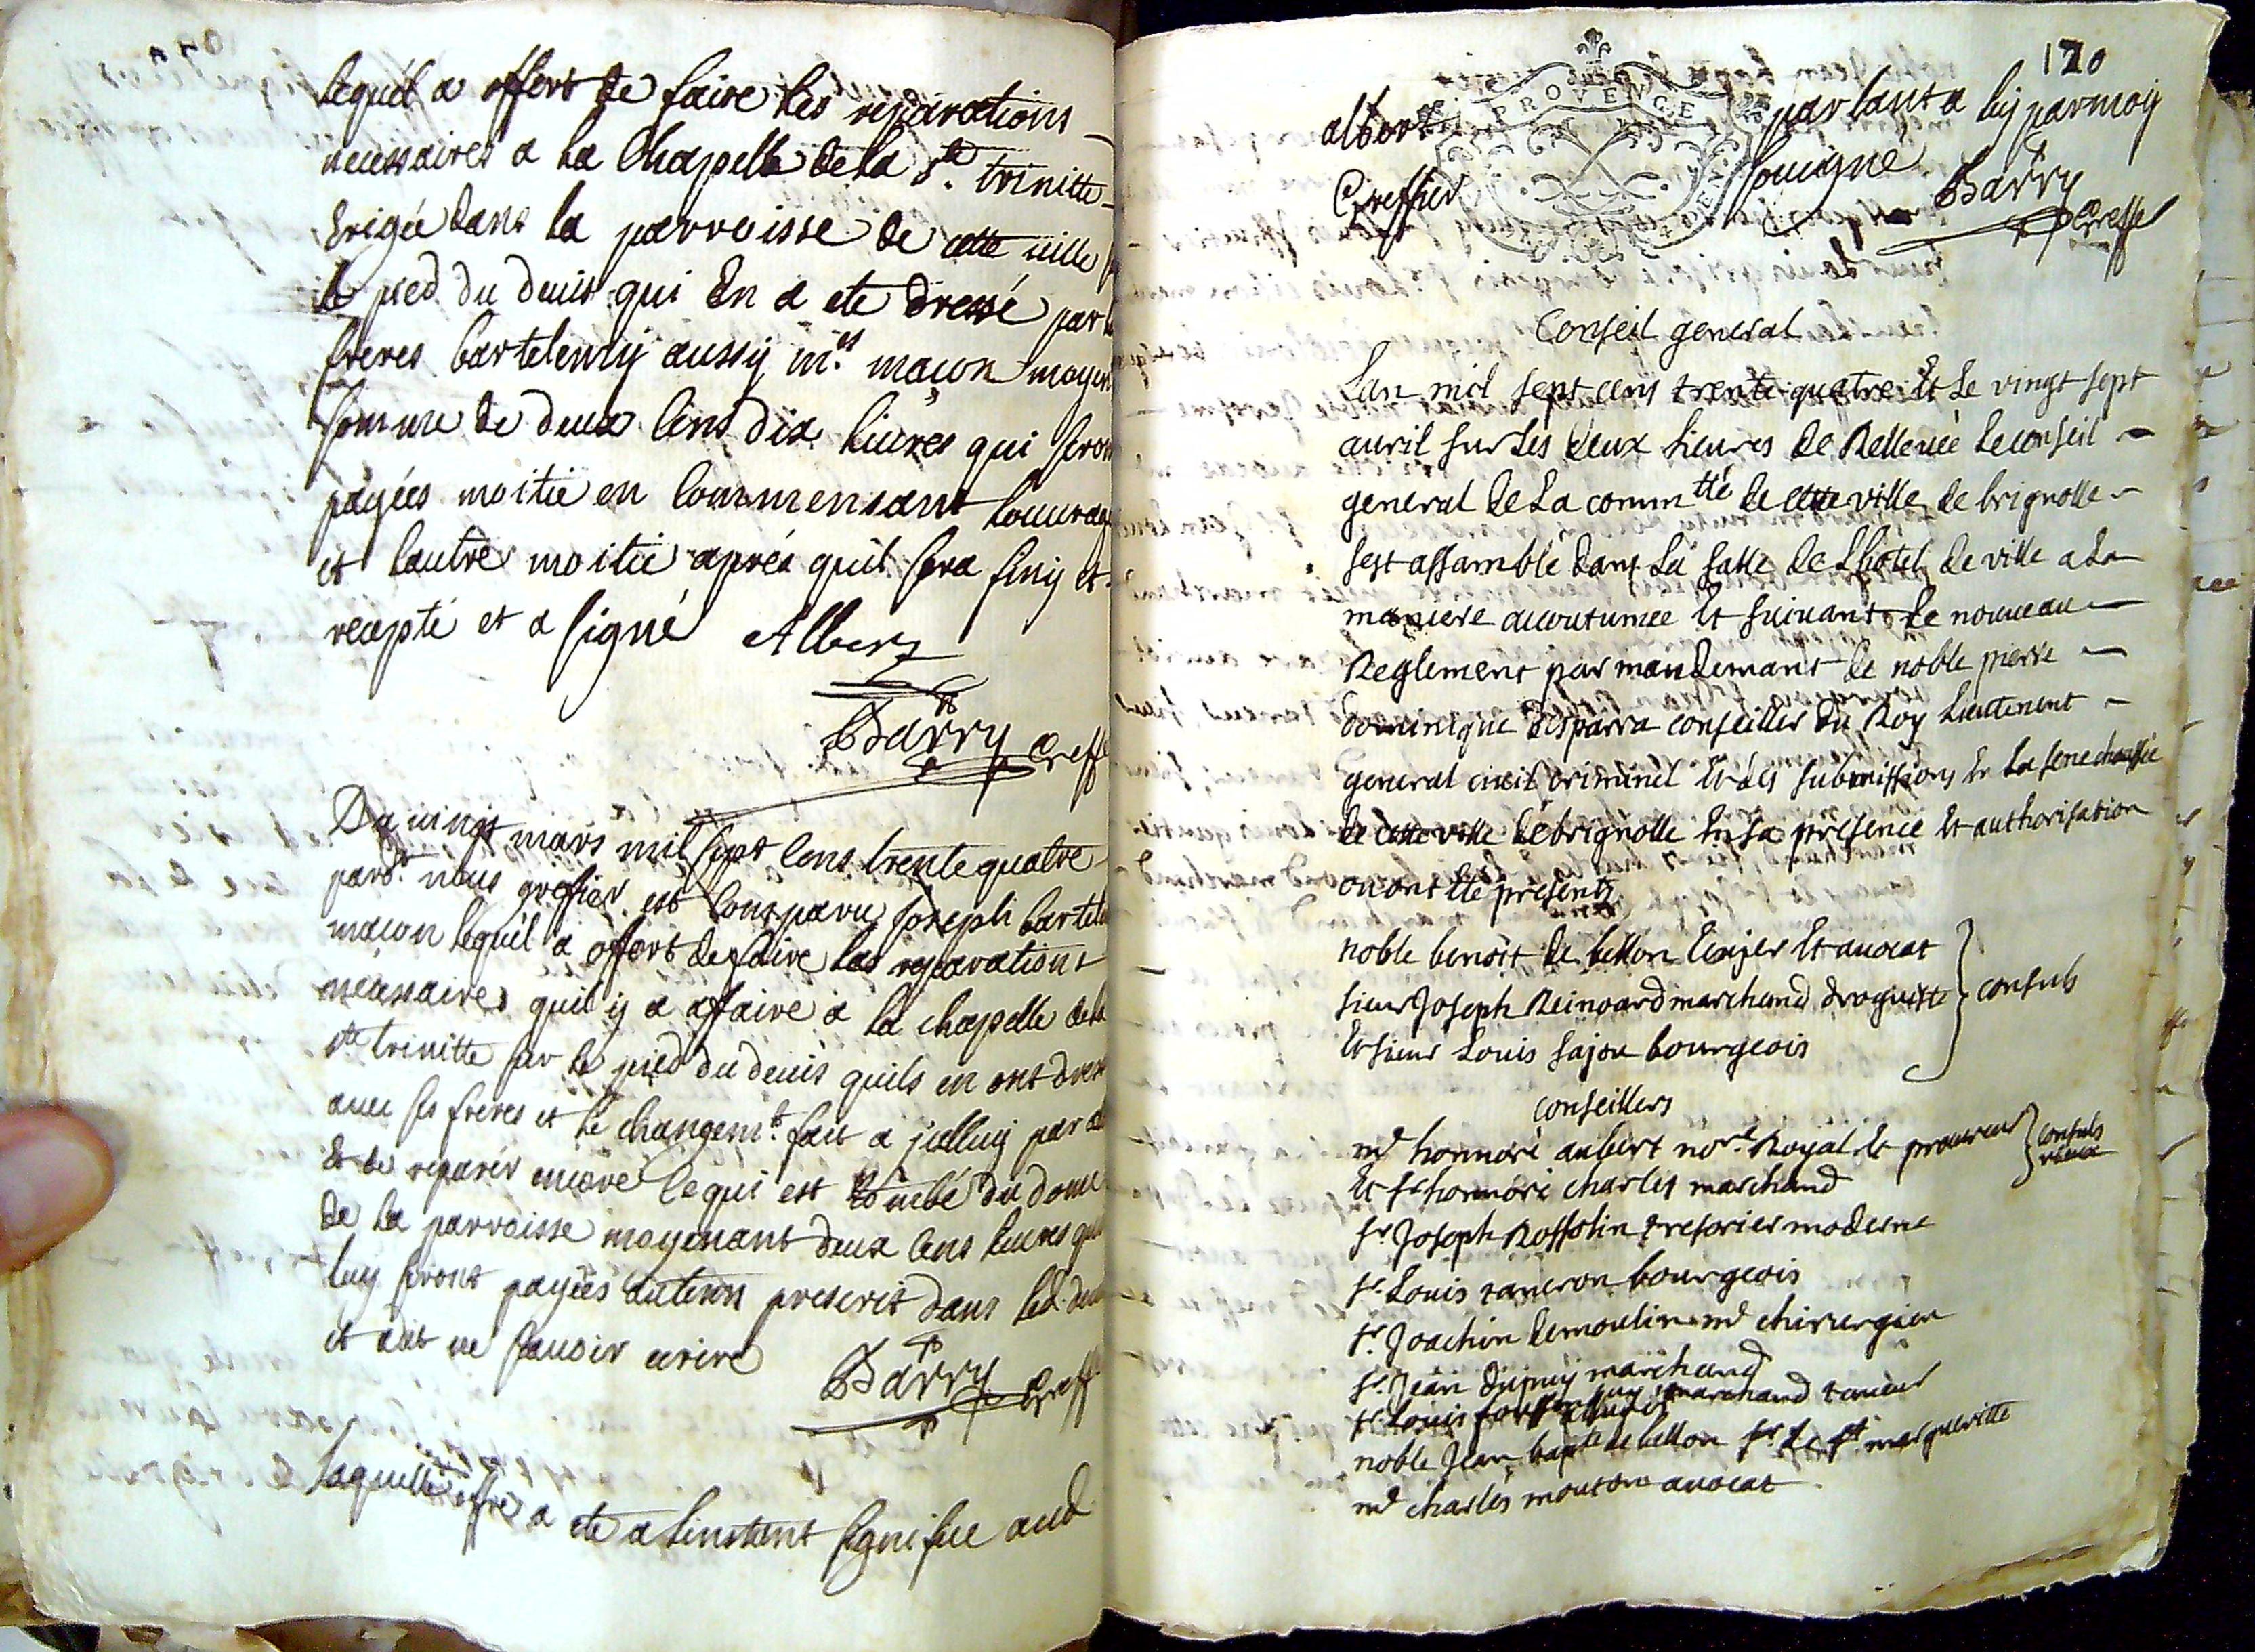 lequel a offert de faire les reparations
necessaires a la Chapelle de la Ste trinitte
Erigée dans la parroisse de cette ville
le pied du devis qui En a ete dressé par
freres bartelemy aussy mes maçon moyen
somme de deux Cens dix livres qui seron
payées moitié en Commensant Louvrage
et Lautre moitié aprés quil sera finy et
recepté et a signé Albert
Barry Greff
Du vingt mars mil sept Cens trente quatre
pard.t nous grefier est Comparu Joseph bartele
maçon lequel a offert de faire les reparations
necessaires quil y a affaire a la chapelle de la
ste trinitte sur le pied du devis quils en ont dressé
avec ses freres et le changemt. fait a jcelluy par
Et de reparer encore Ce qui est tombé du dome
de la parroisse moyenant deux Cens livres qui
luy seront payées autemn prescrit dans led. devis
et a dit ne savoir ecrire
Barry Greff
Laquelle offre a ete a Linstant signifiée aud
120
albert parlant a luy par moy
Greffier souigné
Barry
Greff
PROVENCE
Conseil general
Lan mil sept cens trente quatre Et Le vingt sept
avril sur Les deux heures de Rellevée Le conseil
general de La commtté de cette ville de brignolle
sest assamblé dans La salle de Lhôtel de ville a La
maniere accoutumée Et suivant Le nouveau
Reglement par mandemant de noble pierre
dominique desparra conseiller du Roy Lieutenent
general civil criminel Et des submissions En La senechaussée
de cette ville de brignolle En sa presence Et authorisation
ou ont Eté presents
noble benoit de bellon Ecuyer Et avocat
sieur Joseph Reinoard marchand droguiste } consuls
Et sieur Louis sajou bourgeois
conseillers
me honnoré aubert nore. Royal Et procureur } consuls vieux
Et sr honnoré charles marchand
sr. Joseph Rossolin tresorier moderne
sr. Louis taneron bourgeois
sr. Joachin demoulin me chirurgien
sr. Jean dupuy marchand
sr. Louis marchand taneur
noble Jean bapte de bellon sr de ste margueritte
me charles mouton avocat